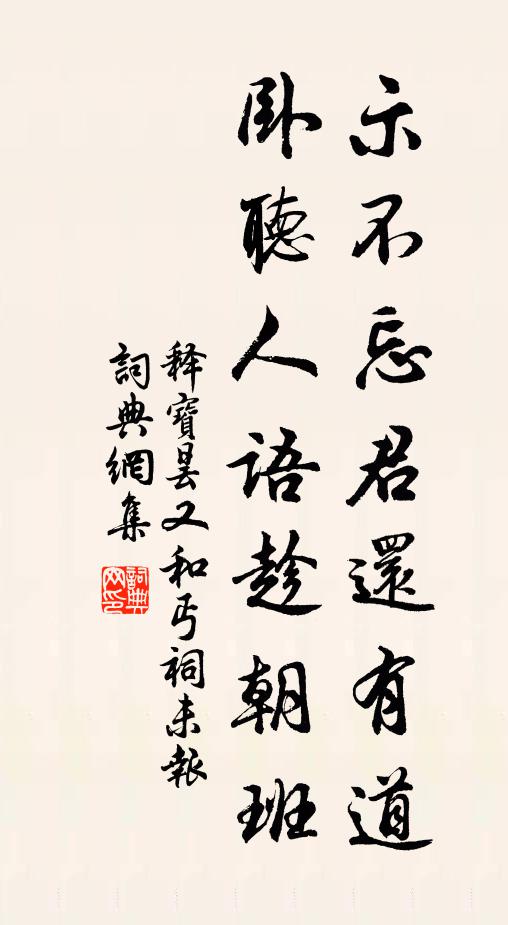 示不忘君還有道
臥聽人語趁朝班
释寶曇又和丐祠未報
詞典網集
詞典
网印